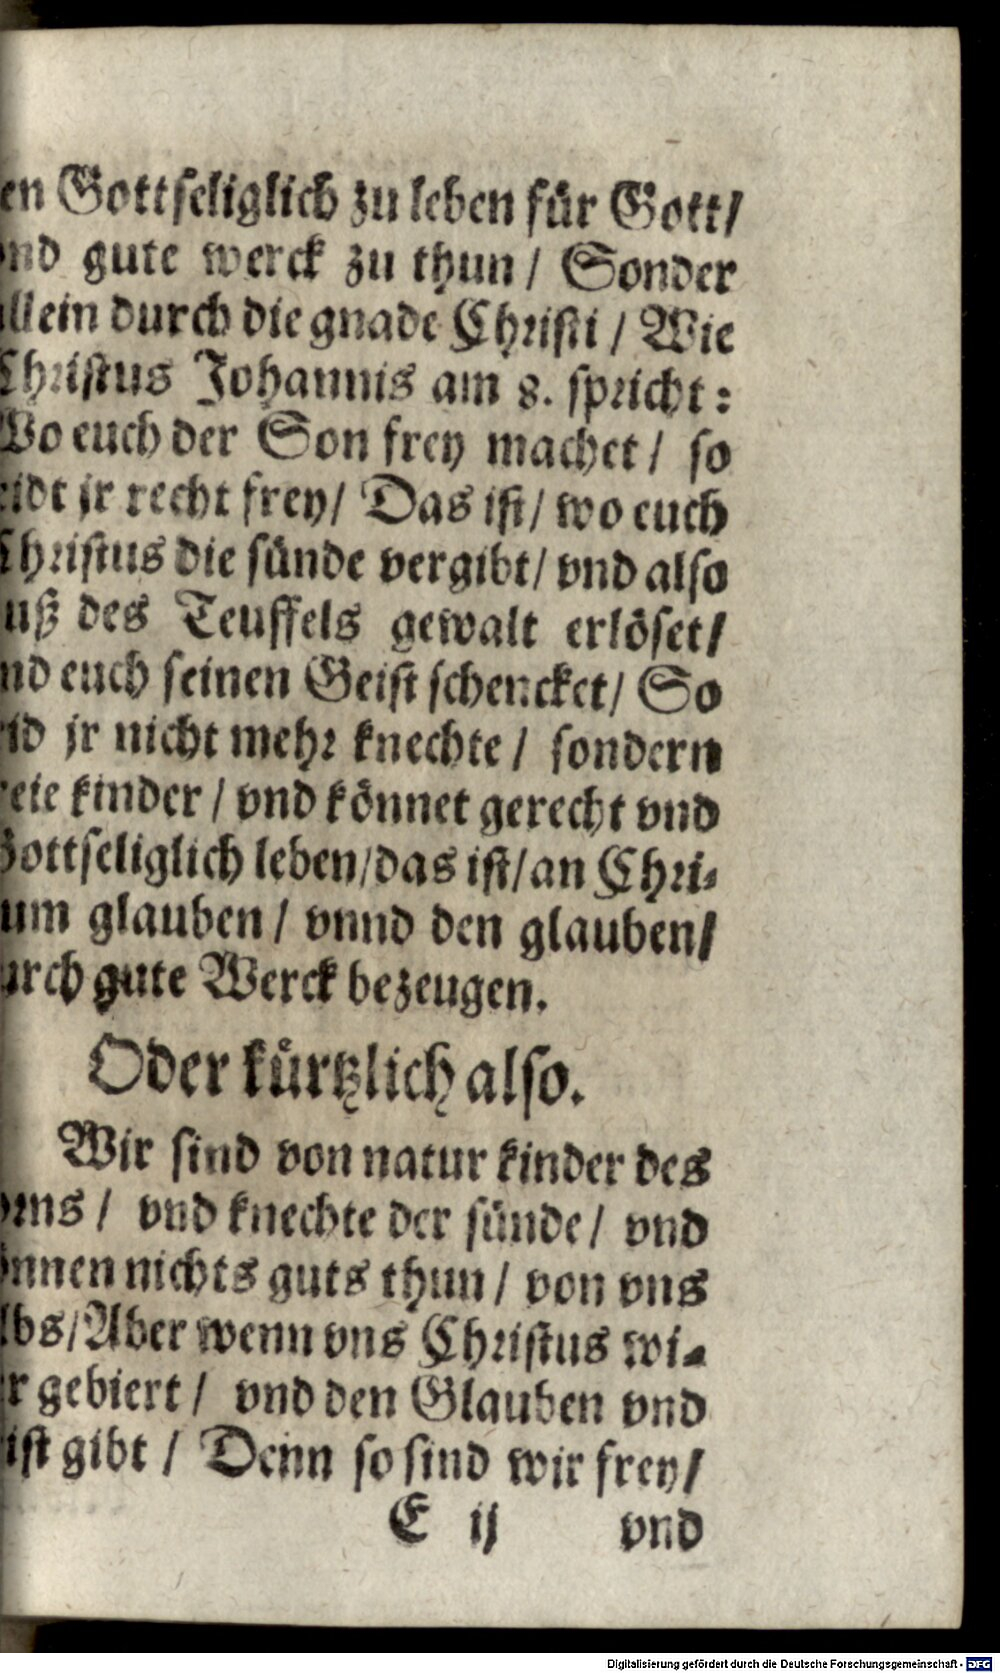 en Gottseliglich zu leben für Gott/
nd gute werck zu thun / Sonder
llein durch die gnade Christi / Wie
Christus Johannis am 8. spricht:
Wo euch der Son frey machet / so
idt jr recht frey/ Das ist/ wo euch
Christus die sünde vergibt/ vnd also
uß des Teuffels gewalt erlöset/
nd euch seinen Geist schencket/ So
id jr nicht mehr knechte / sondern
eie kinder / vnd könnet gerecht vnd
Gottseliglich leben/das ist/an Chri-
um glauben / vnnd den glauben/
urch gute Werck bezeugen.
Oder kürtzlich also.
Wir sind von natur kinder des
orns / vnd knechte der sünde / vnd
önnen nichts guts thun / von vns
lbs/Aber wenn vns Christus wi-
r gebiert / vnd den Glauben vnd
ist gibt / Denn so sind wir frey/
E ij vnd
Digitalisierung gefördert durch die Deutsche Forschungsgemeinschaft - DFG